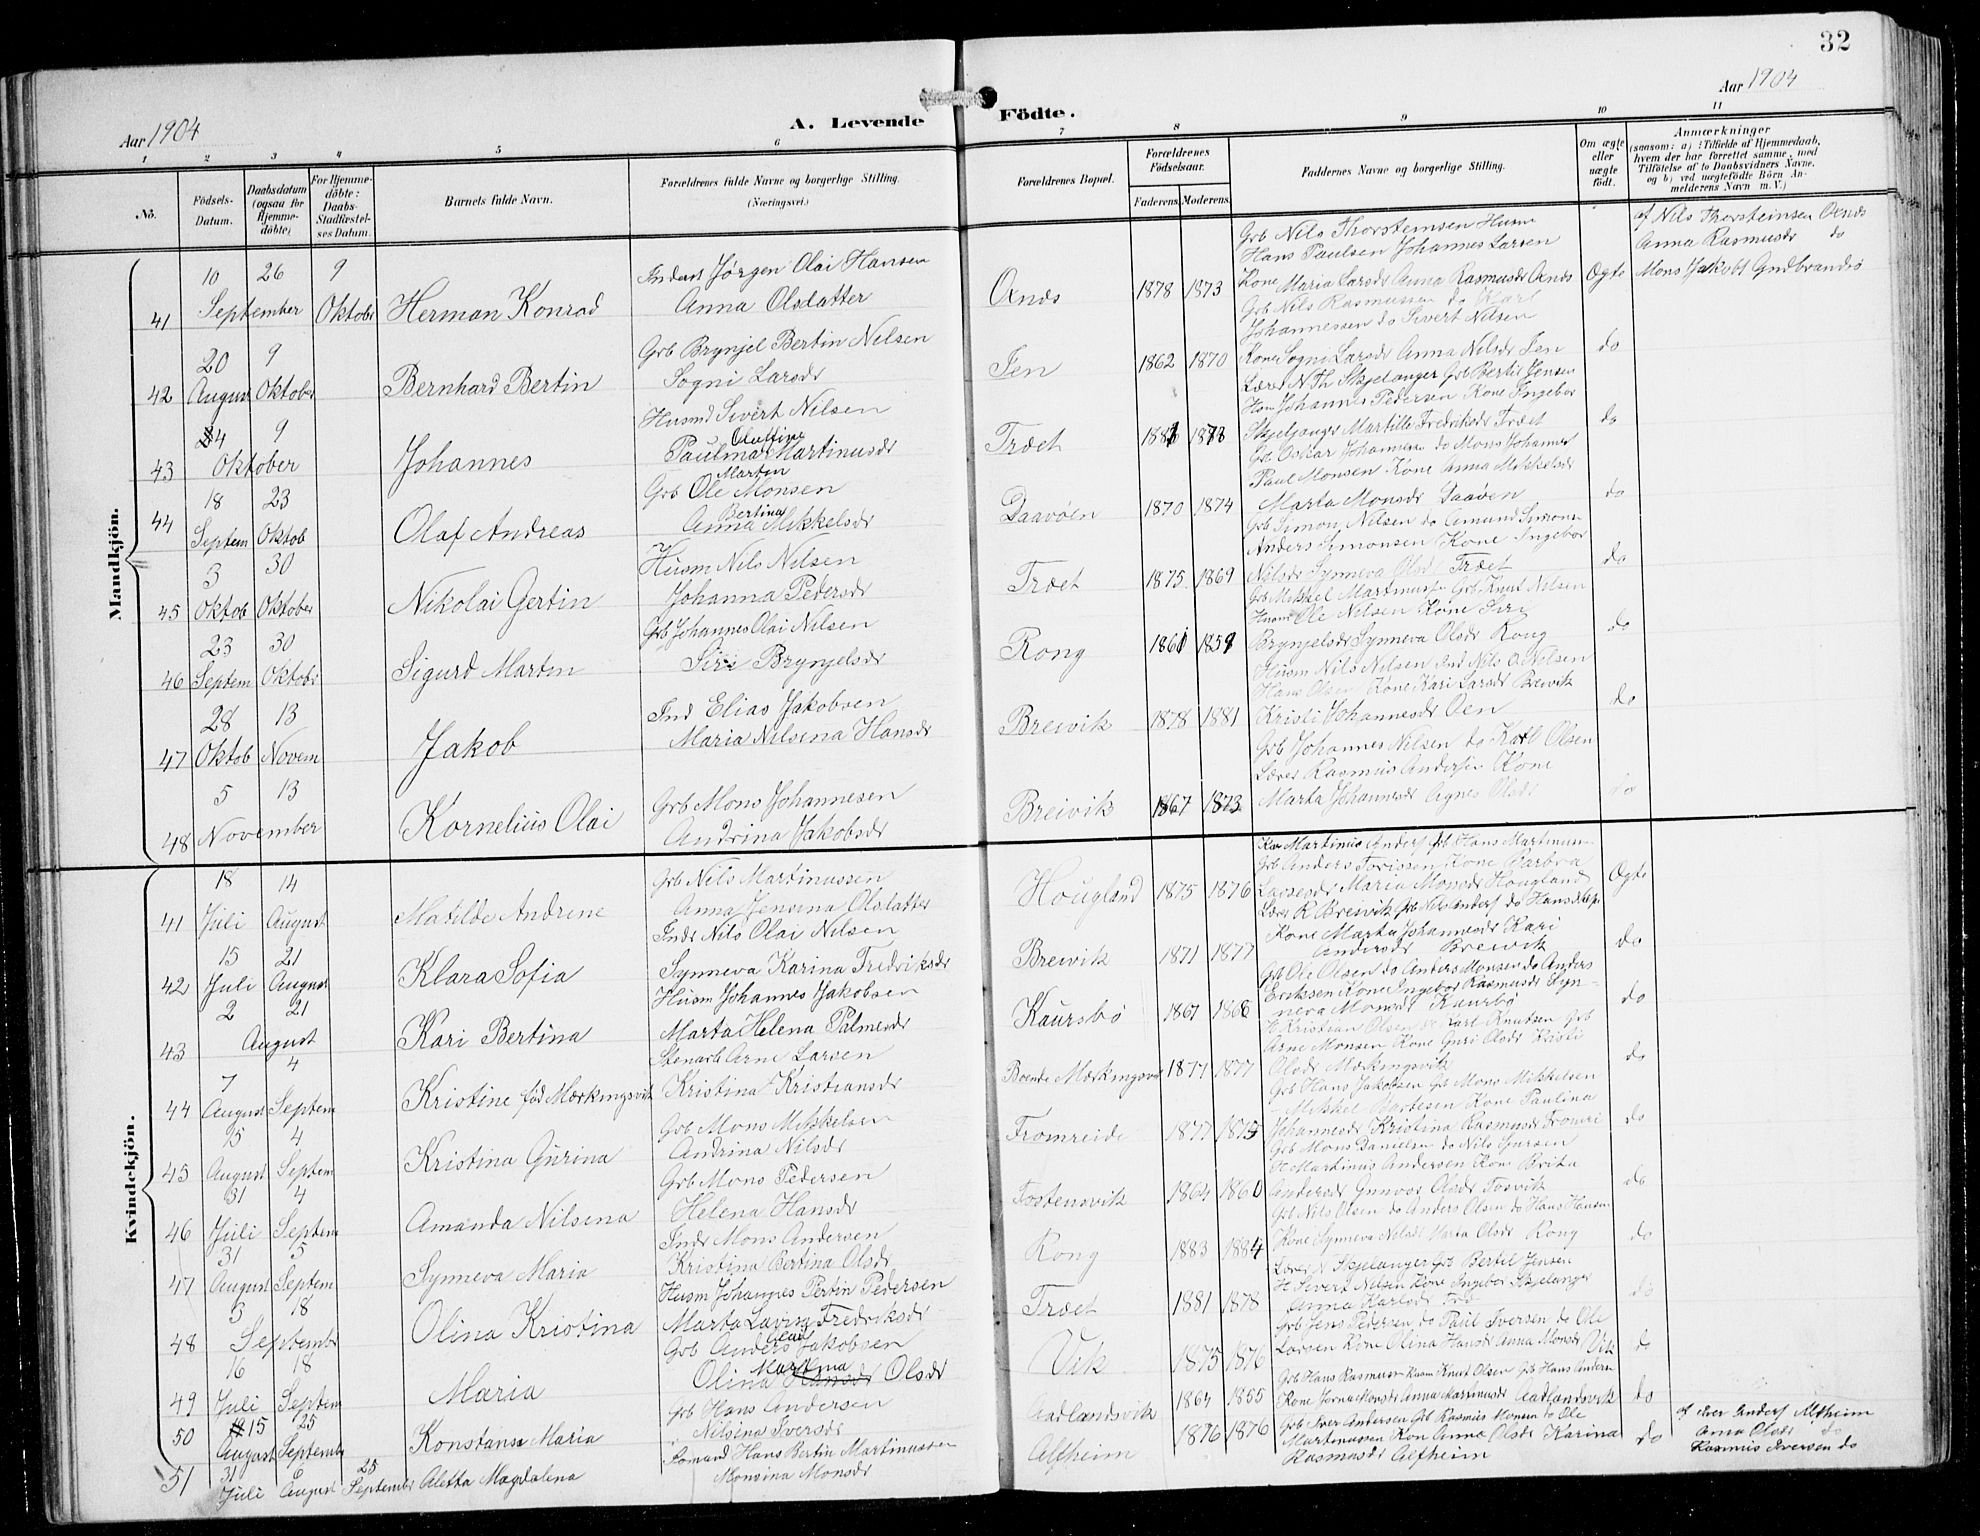 32
Aar 1904
Aar 1904
A. Levende Födte.
1 2 3 4 5 6 7 8 9 10 11
No.
Födsels-Datum.
Daabsdatum (ogsaa for Hjemme-döbte)
For Hjemme-döbte: Daabs-Stadfæstel-ses Datum.
Barnets fulde Navn.
Forældrenes fulde Navne og borgerlige Stilling.
(Næringsvei.)
Forældrenes Bopæl.
Forældrenes Födselsaar.
Faderens. Moderens.
Faddernes Navne og borgerlige Stilling.
Om ægte eller uægte födt.
Anmærkninger
(saasom: a) i Tilfælde af Hjemmedaab,
hvem der har forrettet samme, med
Tilföielse af to Daabsvidners Navne.
og b) ved uægtefödte Börn An-
melderens Navn m. V.)
Mandkjön.
41 10 September 26 9 Oktober Herman Konrad
Inderst Jørgen Olai Hansen
Anna Olsdatter
Øenes 1878 1873
Grb Nils Thorsteinsen Husm
Hans Paulsen Johannes Larsen
Kone Maria Larsdr Anna Rasmusdr Øenes
Ægte
af Nils Thorsteinsen Øenes
Anna Rasmusdr do
Mons Jakobs Gudbrandsø
42 20 August 9 Oktober Bernhard Bertin
Grb Brynjel Bertin Nilsen
Sogni Larsdr
Jen 1862 1870
Grb Nils Rasmussen do Karl
Johannessen do Sivert Nilsen
Kone Sogni Larsdr Anna Nilsdr Jen
do
43 4 Oktober 9 Johannes
Husmd Sivert Nilsen
Paulina Oluffine Martinusdr
Træet 1881 1878
Lærer N Th Skjelanger Grb Bertil Jensen
Hsm Johannes Pedersen Kone Ingebor
Skjelanger Martille Fredriksdr Træet
do
44 18 Septem 23 Oktob Olaf Andreas
Grb Ole Martin Monsen
Anna Bertina Mikkelsdr
Daavøen 1870 1874
Grb Oskar Johannesen do Mons Johannes
Paul Monsen Kone Anna Mikkelsdr
Marta Monsdr Daavøen
do
45 3 Oktob 30 Oktober Nikolai Gertin
Husm Nils Nilsen
Johanna Pedersdr
Træet 1875 1869
Grb Simon Nilsen do Amund Simons
Anders Simonsen Kone Ingebor
Nilsdr Synneva Olsd Træet
do
46 23 Septem 30 Oktobr Sigurd Martin
Grb Johannes Olai Nilsen
Siri Brynjelsdr
Rong 1861 1859
Grb Mikkel Martinusse Grb Knut Nilsen
Husm Ole Nilsen Kone Siri
Brynjelsdr Synneva Olsdr Rong
do
47 28 Oktob 13 Novem Jakob
Ind Elias Jakobsen
Maria Nilsena Hansdr
Breivik 1878 1881
Husm Nils Nilsen Ind Nils O Nilsen
Hans Olsen Kone Kari Larsdr Breivik
Kristi Johannesdr Oen
do
48 5 November 13 Kornelius Olai
Grb Mons Johannesen
Andrina Jakobsdr
Breivik 1867 1873
Grb Johannes Nilsen do Karl Olsen
Lærer Rasmus Andersen Kone
Marta Johannesdr Agnes Olsdr
do
Kvindekjön.
41 18 Juli 14 August Matilde Andrene
Grb Nils Martinussen
Anna Jensina Olsdatter
Hougland 1875 1876
Martinius Anders Grb Hans Martinuss
Grb Anders Torissen Kone Barbra
Larsesdr Maria Monsdr Hougland
Ægte
42 15 Juli 21 August Klara Sofia
Indr Nils Olai Nilsen
Synneva Karina Fredriksdr
Breivik 1871 1877
Lærer R Breivik Grb Nils Anders do Hans
Kone Marta Johannesdr Kari
Andersdr Breivik
do
43 2 August 21 Kari Bertina
Husm Johannes Jakobsen
Marta Helena Palmesdr
Kaursbø 1867 1866
Grb Ole Olsen do Anders Monsen do Anders
Eriksen Kone Ingebor Rasmusdr Syn-
neva Monsdr Kaursbø
do
44 7 August 4 Septem Kristine fød Mærkingsvik
Stenarb Arne Larsen
Kristina Kristiansdr
Boende Mærkingsvik 1877 1877
Kristian Olsen do Karl Knutsen Grb
Arne Monsen Kone Guri Olsdr Kristi
Olsdr Mærkingsvik
do
45 15 August 4 Septem Kristina Gurina
Grb Mons Mikkelsen
Andrina Nilsdr
Fromreide 1877 1875
Grb Hans Jakobsen Grb Mons Mikkelsen
Mikkel Bartesen Kone Paulina
Johannesdr Kristina Rasmusdr Fromrei
do
46 31 Juli 4 Septem Amanda Nilsena
Grb Mons Pedersen
Helena Hansdr
Tostensvik 1864 1860
Grb Mons Danielsen do Nils Sjursen
H Martinus Andersen Kone Brita
Andersdr Gunvor Olsdr Tosvik
do
47 31 August 5 Septem Synneva Maria
Indr Mons Andersen
Kristina Bertina Olsdr
Rong 1883 1884
Grb Nils Olsen do Anders Olsen do Hans Hansen
Kone Synneva Nilsdr Marta Olsdr Rong
do
48 3 Septembr 18 Olina Kristina
Husm Johannes Pertin Pedersen
Marta Lavina Fredriksdr
Træet 1881 1878
Lærer N Skjelanger Grb Bertil Jensen
H Sivert Nilsen Kone Ingebor Skjelanger
Anna Karlsdr
do
49 16 Juli 18 Septem Maria
Grb Anders Olai Jakobsen
Olina Martina Hansdr Olsdr
Vik 1875 1876
Grb Jens Pedersen do Paul Iversen do Ole
Larsen Kone Olina Hansdr Anna Monsdr Vik
do
50 15 August 25 Septembr Konstanse Maria
Grb Hans Andersen
Nilsina Iversdr
Aadlandsvik 1864 1855
Grb Hans Rasmusen Husm Knut Olsen Grb Hans Anders
Kone Jorna Monsdr Anna Martinusdr Aadlandsvik
do
51 31 Juli 6 August 25 Septembr Aletta Magdalena
Somand Hans Bertin Martinussen
Monsina Monsdr
Alfheim 1876 1876
Grb Iver Andersen Grb Rasmus Monsen do Ole
Martinussen Kon Anna Olsdr Karina
Rasmusdr Alfheim
do
af Iver Anders Alfheim
Anna Olsdr do
Rasmus Iversen do